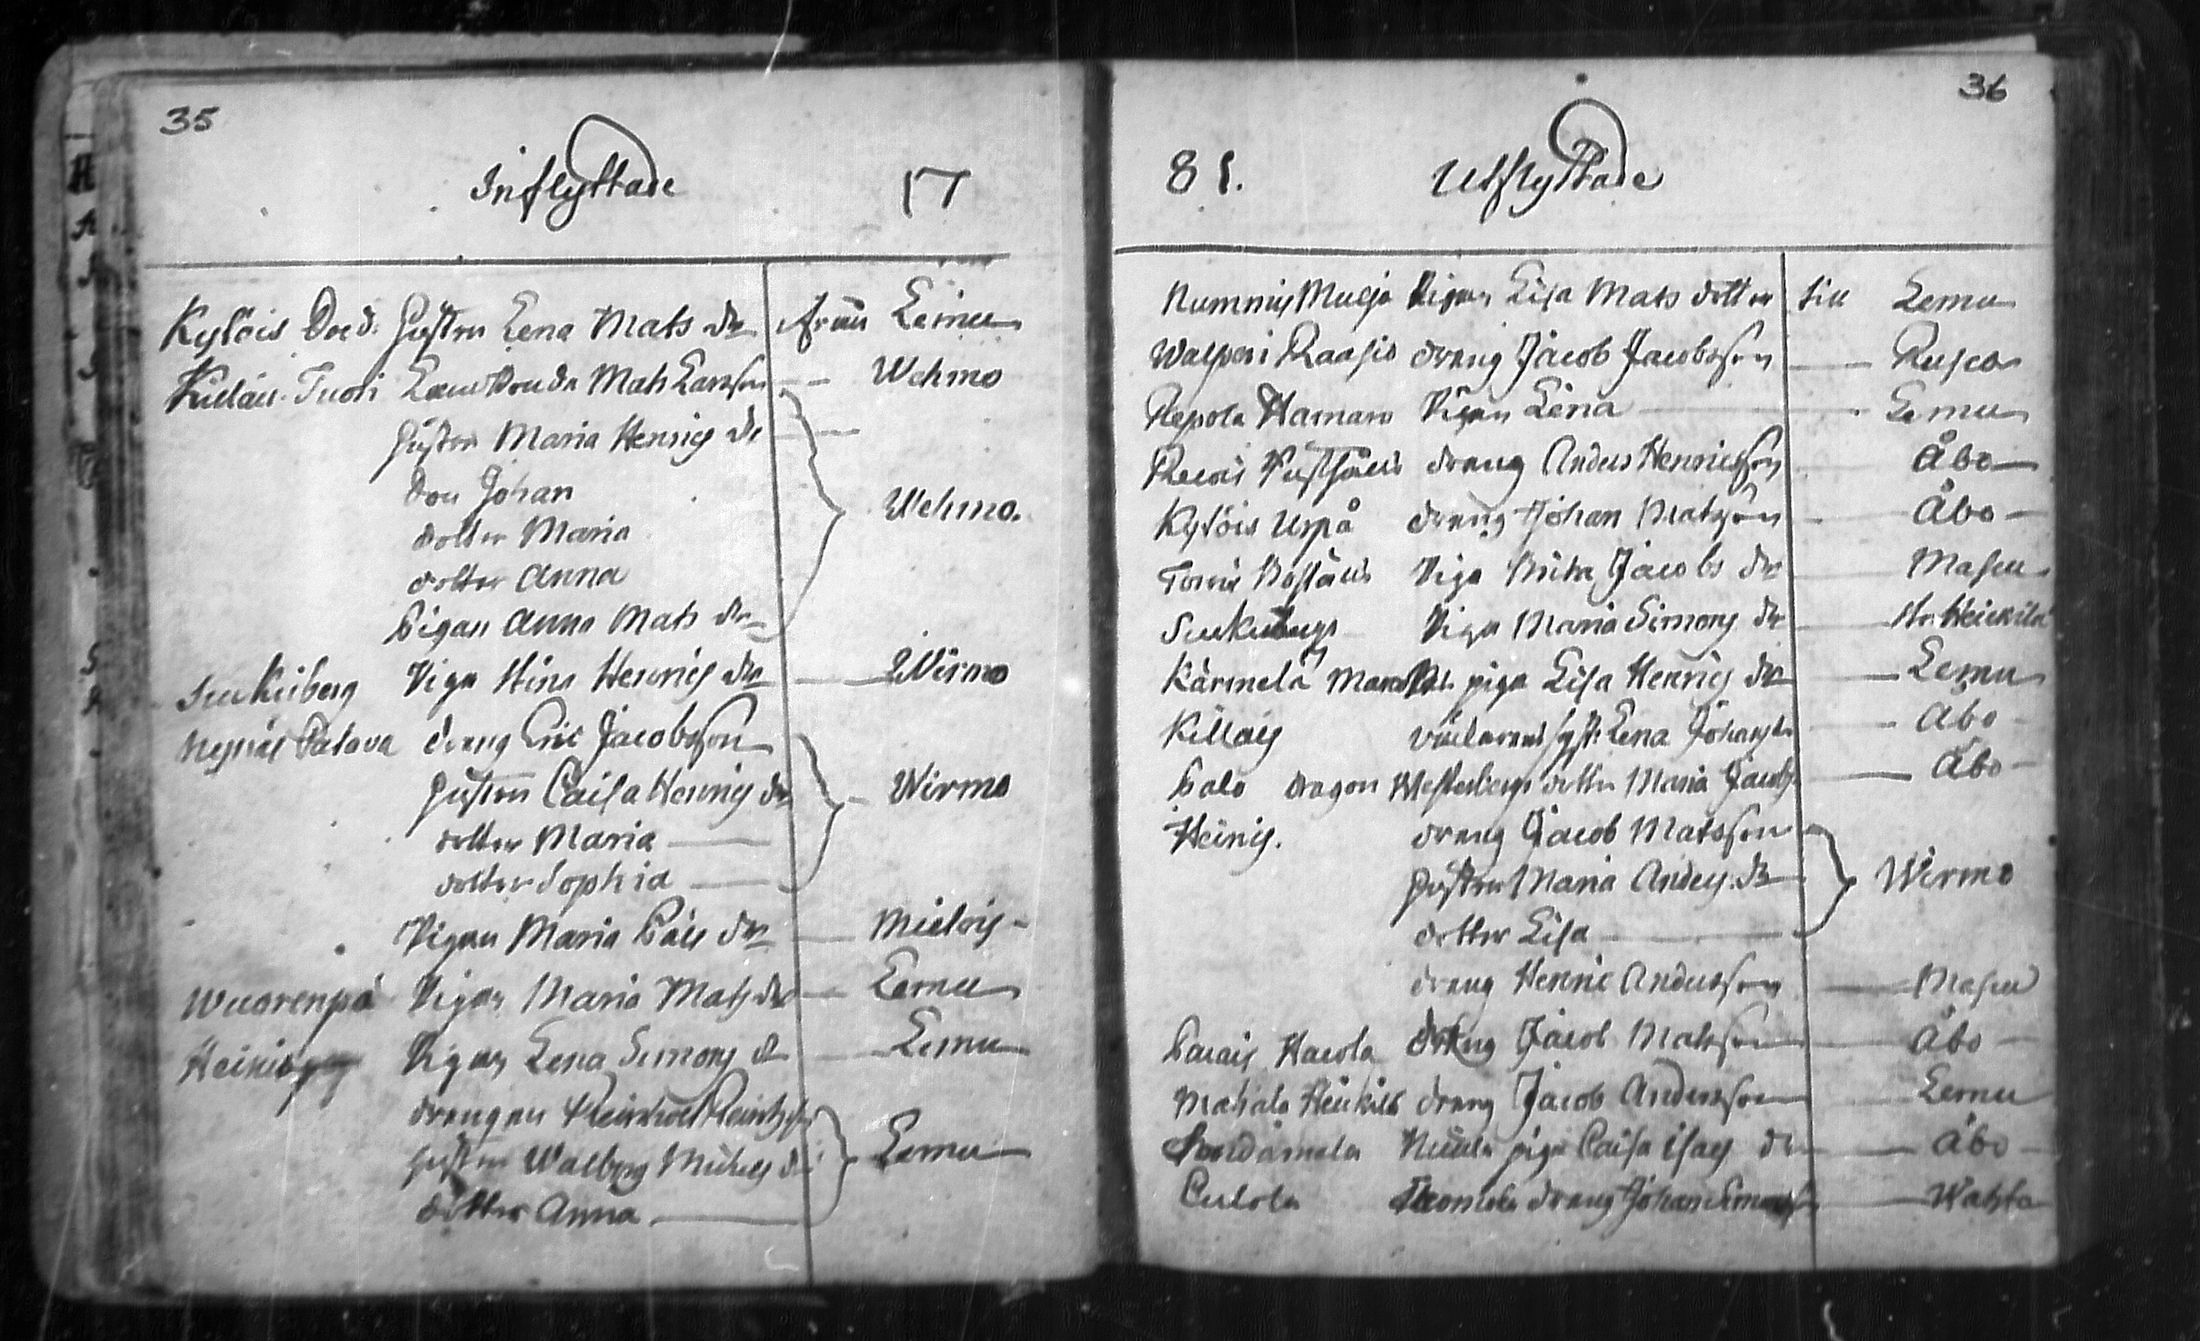 35
Inflyttade 17
Kylöis Doed. hustru Lena Mats dr från Lemu
Tuori Mats Larsson — Wehmo
hustru Maria Henrics dr —
Son Johan
dotter Maria Wehmo.
dotter Anna
Pigan Anna Mats dr
Suukiiberg Piga Stina Henrics dr — Wirmo
Nynäs Palava dräng Eric Jacobsson
hustru Caisa Henrics dr Wirmo
dotter Maria —
dotter Sophia —
Pigan Maria dr — Mietois
Wuorenpä Pigan Maria Mats dr — Lemu
Heinis Pigan Lena Simons dr — Lemu
drängen
hustru Walborg Michels dr Lemu
dotter Anna —
36
81. Utflyttade
Nummis Pigan Lisa Mats dotter till Lemu
Walperi Raasio dräng Jacob Jacobsson — Rusco
Repola Hamaro Pigan Lena — Lemu
dräng Anders Henricsson Åbo
Kylöis Uspå dräng Johan Matsson — Åbo
Piga Brita Jacobs dr — Masku
Piga Maria Simons dr — Heickilä
Kärmelä piga Lisa Henrics dr — Lemu
Killais Lena Johans dr — Åbo
Palo dragon Westerbergs dotter Maria Jacobs — Åbo
Heinis. dräng Jacob Matsson
hustru Maria Anders dr Wirmo
dotter Lisa —
dräng Henric Andersson — Masku
Harola dräng Jacob Matsson — Åbo
Mahala Heickilä dräng Jacob Andersson — Lemu
piga Caisa Isacs dr — Åbo
dräng Johan — Wahto